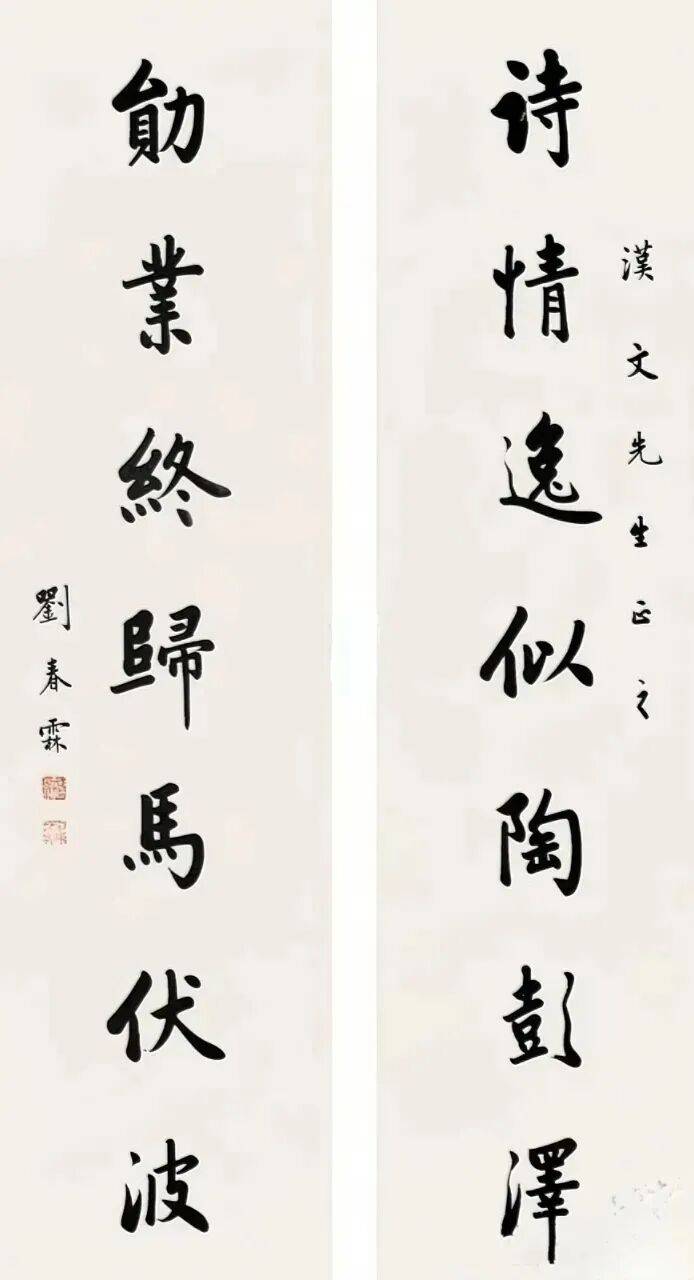 漢文先生正之
诗情逸似陶彭澤
勛業終歸馬伏波
劉春霖